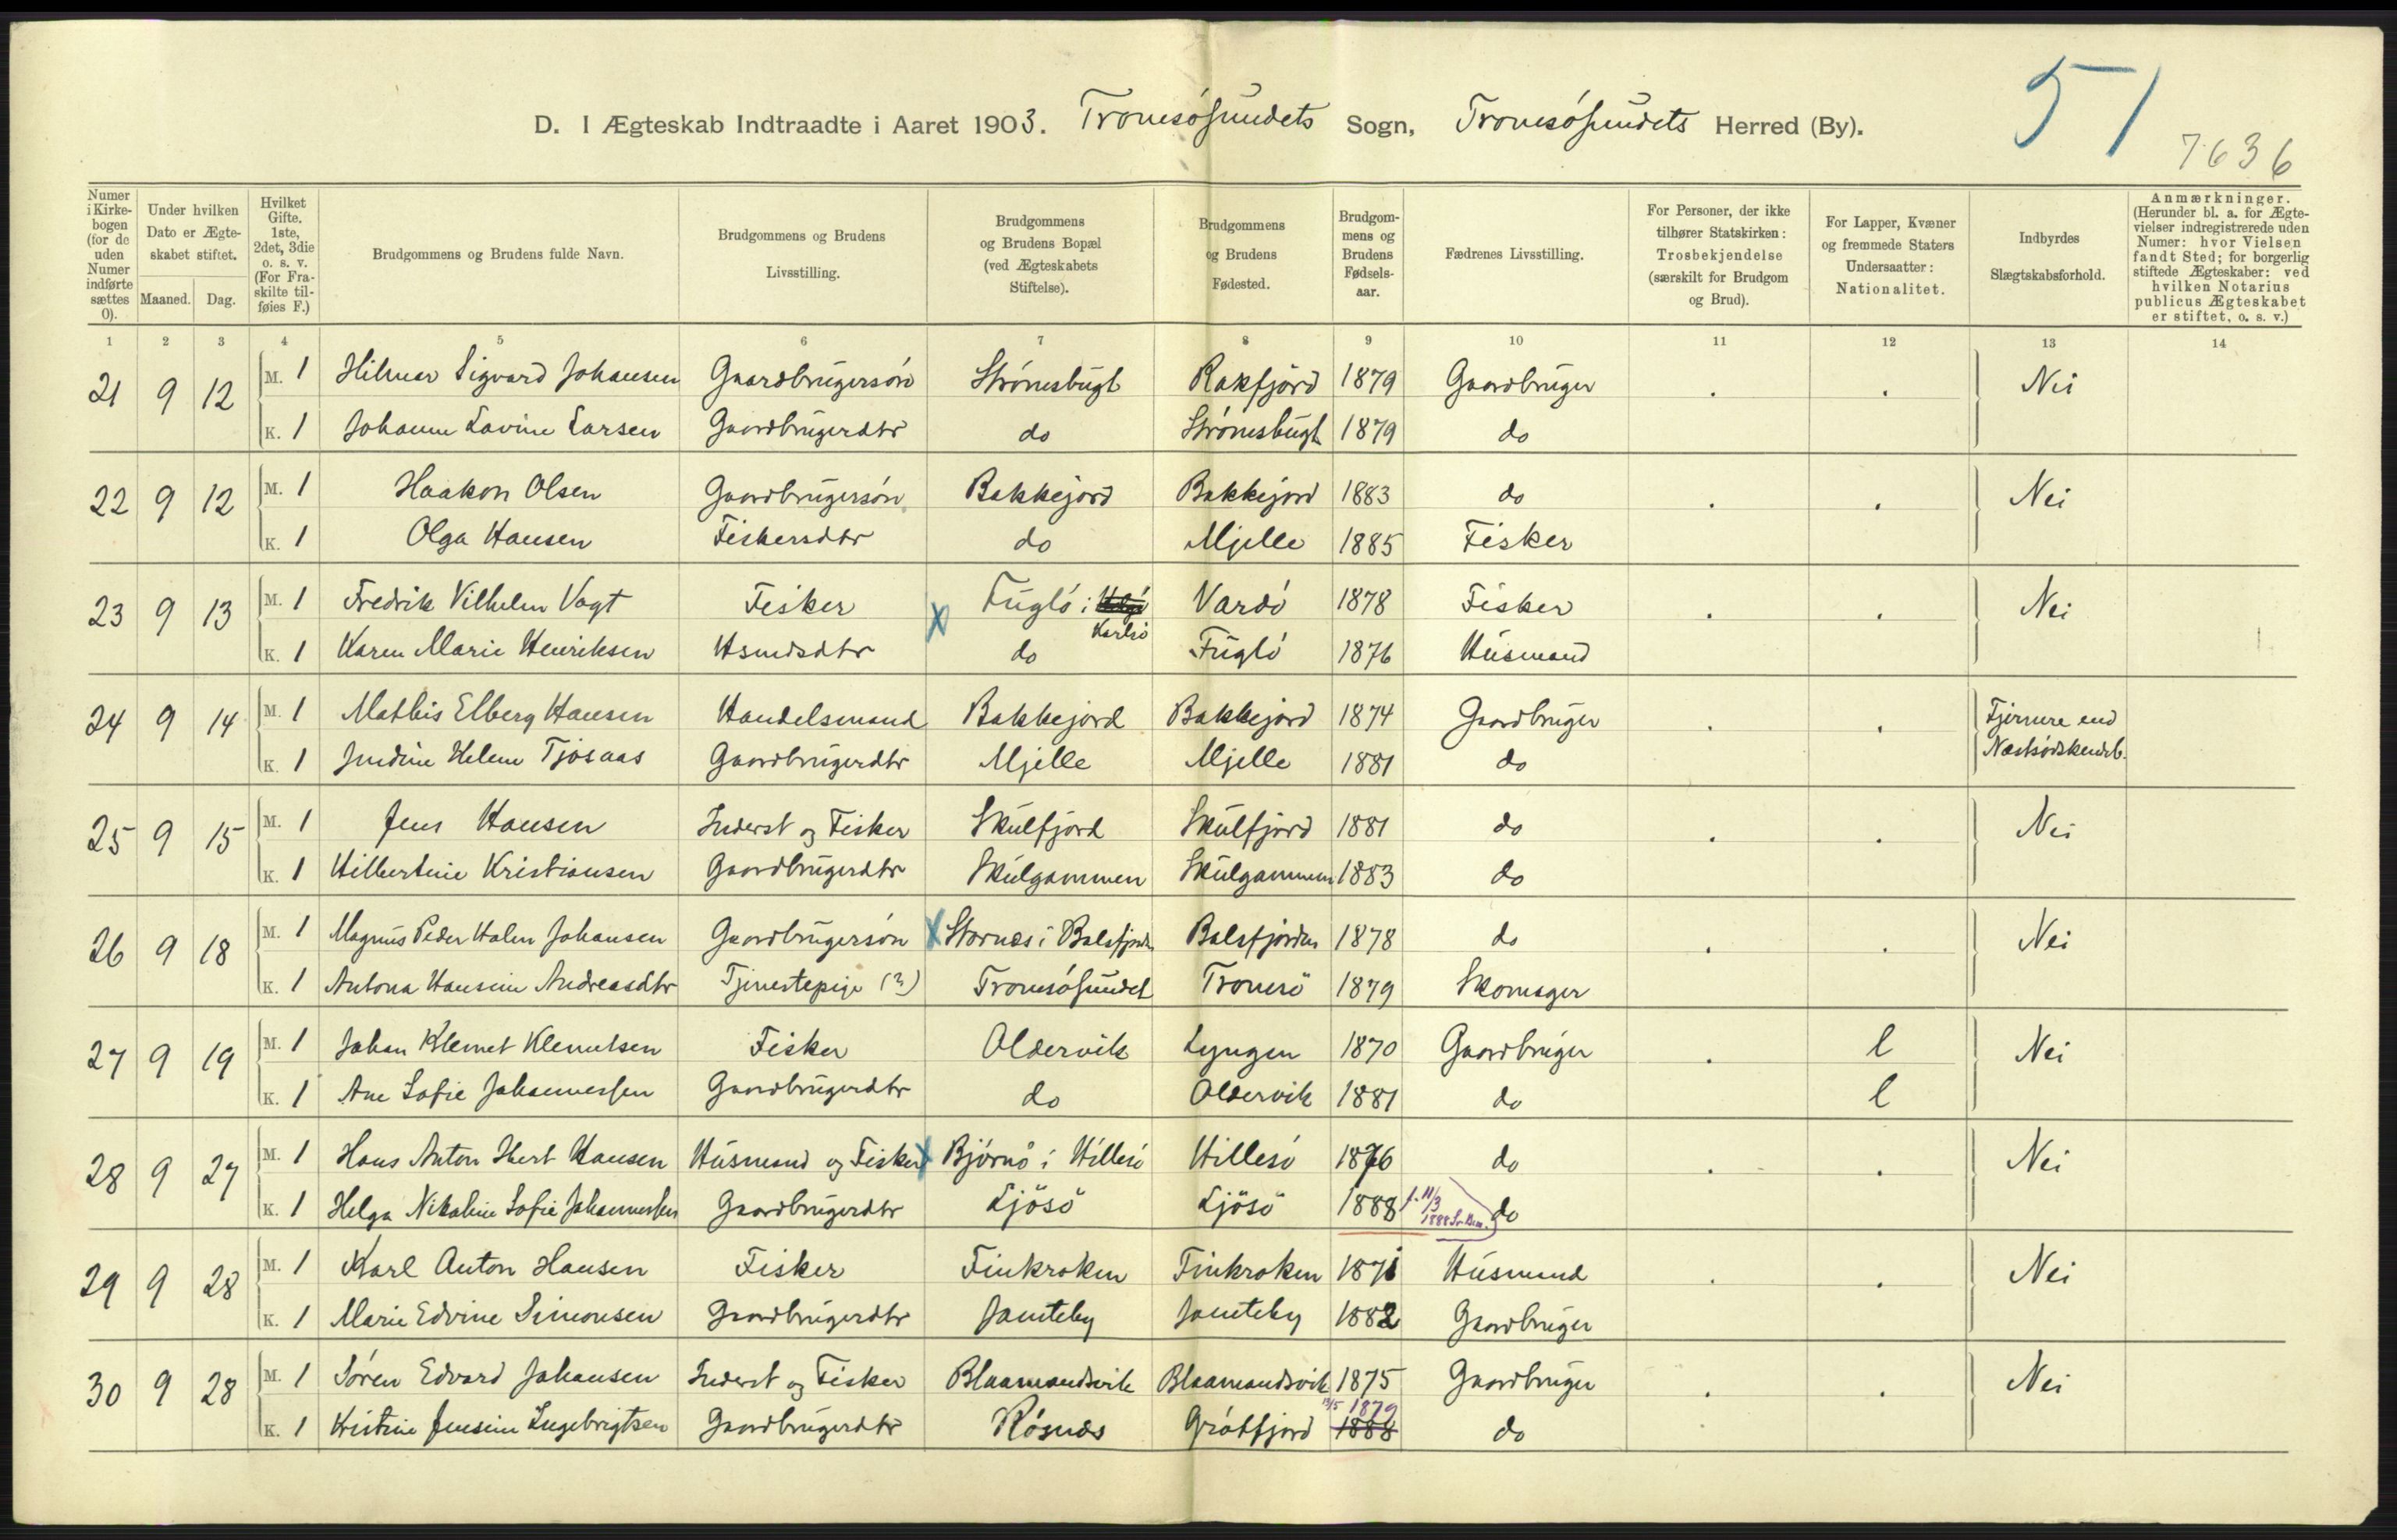 51
7636
D. I Ægteskab Indtraadte i Aaret 1903. Tromsøsundets Sogn, Tromsøsundets Herred (By).
Numer i Kirkebogen (for de uden Numer indførte sættes 0). | Under hvilken Dato er Ægteskabet stiftet. Maaned. Dag. | Hvilket Gifte. 1ste, 2det, 3die o. s. v. (For Fraskilte tilføies F.) | Brudgommens og Brudens fulde Navn. | Brudgommens og Brudens Livsstilling. | Brudgommens og Brudens Bopæl (ved Ægteskabets Stiftelse). | Brudgommens og Brudens Fødested. | Brudgommens og Brudens Fødselsaar. | Fædrenes Livsstilling. | For Personer, der ikke tilhører Statskirken: Trosbekjendelse (særskilt for Brudgom og Brud). | For Lapper, Kvæner og fremmede Staters Undersaatter: Nationalitet. | Indbyrdes Slægtskabsforhold. | Anmærkninger. (Herunder bl. a. for Ægtevielser indregistrerede uden Numer: hvor Vielsen fandt Sted; for borgerlig stiftede Ægteskaber: ved hvilken Notarius publicus Ægteskabet er stiftet, o. s. v.)
1 2 3 4 5 6 7 8 9 10 11 12 13 14
21 9 12 M. 1 Hilmar Sigvard Johansen Gaardbrugersøn Strømsbugt Rakfjord 1879 Gaardbruger . . Nei
K. 1 Johanne Lavine Larsen Gaardbrugerdtr do Strømsbugt 1879 do
22 9 12 M. 1 Haakon Olsen Gaardbrugersøn Bakkejord Bakkejord 1883 do . . Nei
K. 1 Olga Hansen Fiskersdtr do Mjelle 1885 Fisker
23 9 13 M. 1 Fredrik Vilhelm Vogt Fisker X Fuglø i Karlsø Vardø 1878 Fisker . . Nei
K. 1 Karen Marie Henriksen Hsmdsdtr do Fuglø 1876 Husmand
24 9 14 M. 1 Mathis Elberg Hansen Handelsmand Bakkejord Bakkejord 1874 Gaardbruger . . Fjernere end
K. 1 Jindine Helene Tjosaas Gaardbrugerdtr Mjelle Mjelle 1881 do Næstsødskendeb.
25 9 15 M. 1 Jens Hansen Inderst og Fisker Skulfjord Skulfjord 1881 do . . Nei
K. 1 Hilbertine Kristiansen Gaardbrugerdtr Skulgammen Skulgammen 1883 do
26 9 18 M. 1 Magnus Peder Halen Johansen Gaardbrugersøn X Stornes i Balsfjorden Balsfjorden 1878 do . . Nei
K. 1 Antona Hansine Andreasdtr Tjenestepige (?) Tromsøsundet Tromsö 1879 Skomager
27 9 19 M. 1 Johan Klemet Klemetsen Fisker Oldervik Lyngen 1870 Gaardbruger . l Nei
K. 1 Ane Sofie Johannessen Gaardbrugerdtr do Oldervik 1881 do l
28 9 27 M. 1 Hans Anton Hert Hansen Husmand og Fisker X Bjørnø i Hillesö Hillesö 1876 do . . Nei
K. 1 Helga Nikoline Sofie Johannessen Gaardbrugerdtr Ljösö Ljösö 1888 f. 11/3 1888 do
29 9 28 M. 1 Karl Anton Hansen Fisker Finkroken Finkroken 1871 Husmand . . Nei
K. 1 Marie Edvine Simonsen Gaardbrugerdtr Jamteby Jamteby 1882 Gaardbruger
30 9 28 M. 1 Søren Edvard Johansen Inderst og Fisker Blaamandsvik Blaamandsvik 1875 Gaardbruger . . Nei
K. 1 Kristine Jensine Ingebrigtsen Gaardbrugerdtr Røsnæs Grøtfjord 13/5 1879 1888 do